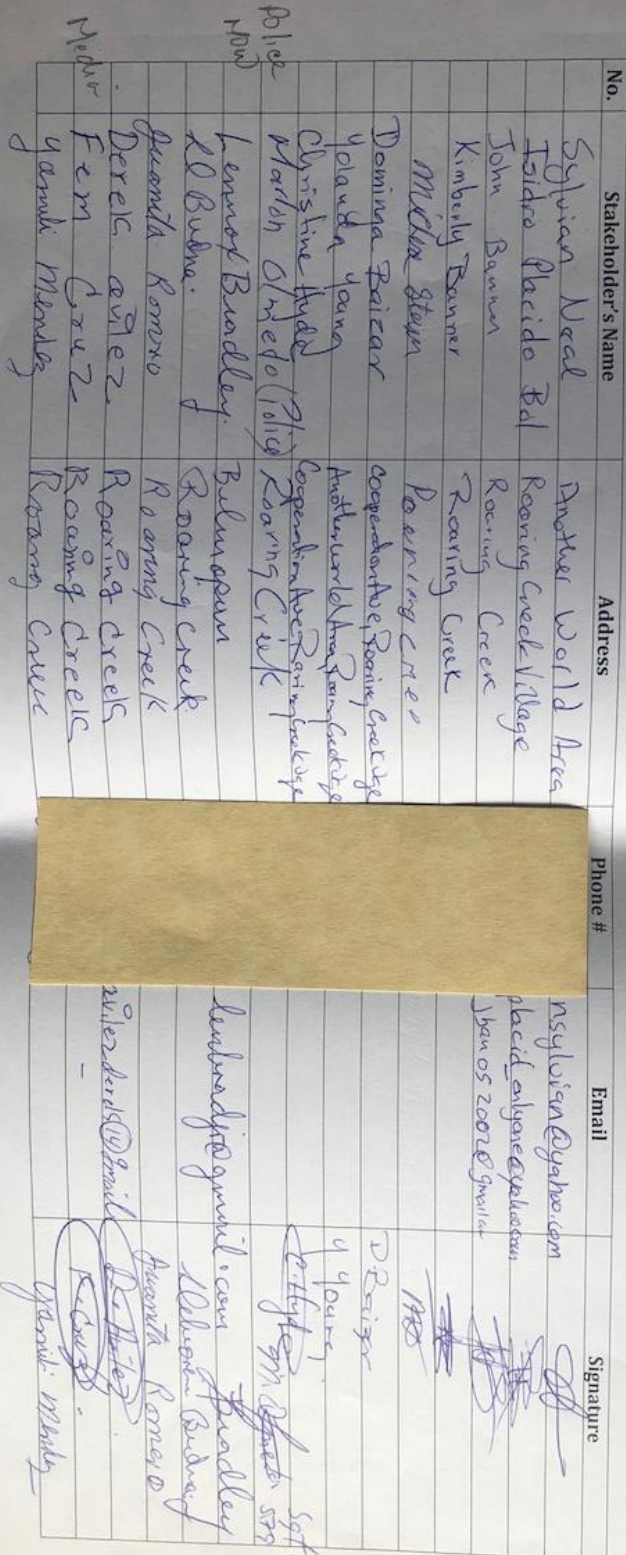 No. Stakeholder's Name Address Phone # Email Signature
Sylvian Neal Another World Area nsylvian@yahoo.com
Isidro Placido Bol Roaring Creek Village
John Banner Roaring Creek
Kimberly Banner Roaring Creek
Roaring Creek
Dominga Baizar Cooperation Ave, Roaring Creek Vge D Baizar
Yolanda Young Another World Area, Roaring Creek Vge Y. Young
Christine Hyde Cooperation Ave, Roaring Creek Vge C. Hyde
Police Marlon Olmedo (Police) Roaring Creek Sgt 579
NOW Lennox Bradley. Belmopan lenbradjr@gmail.com Bradley
Roaring Creek
Juanita Romero Roaring Creek Juanita Romero
Derek avilez Roaring Creek avilezderek@gmail
Media Fem Cruz Roaring Creek -
Yamili Mendez Roaring Creek Yamili Mendez